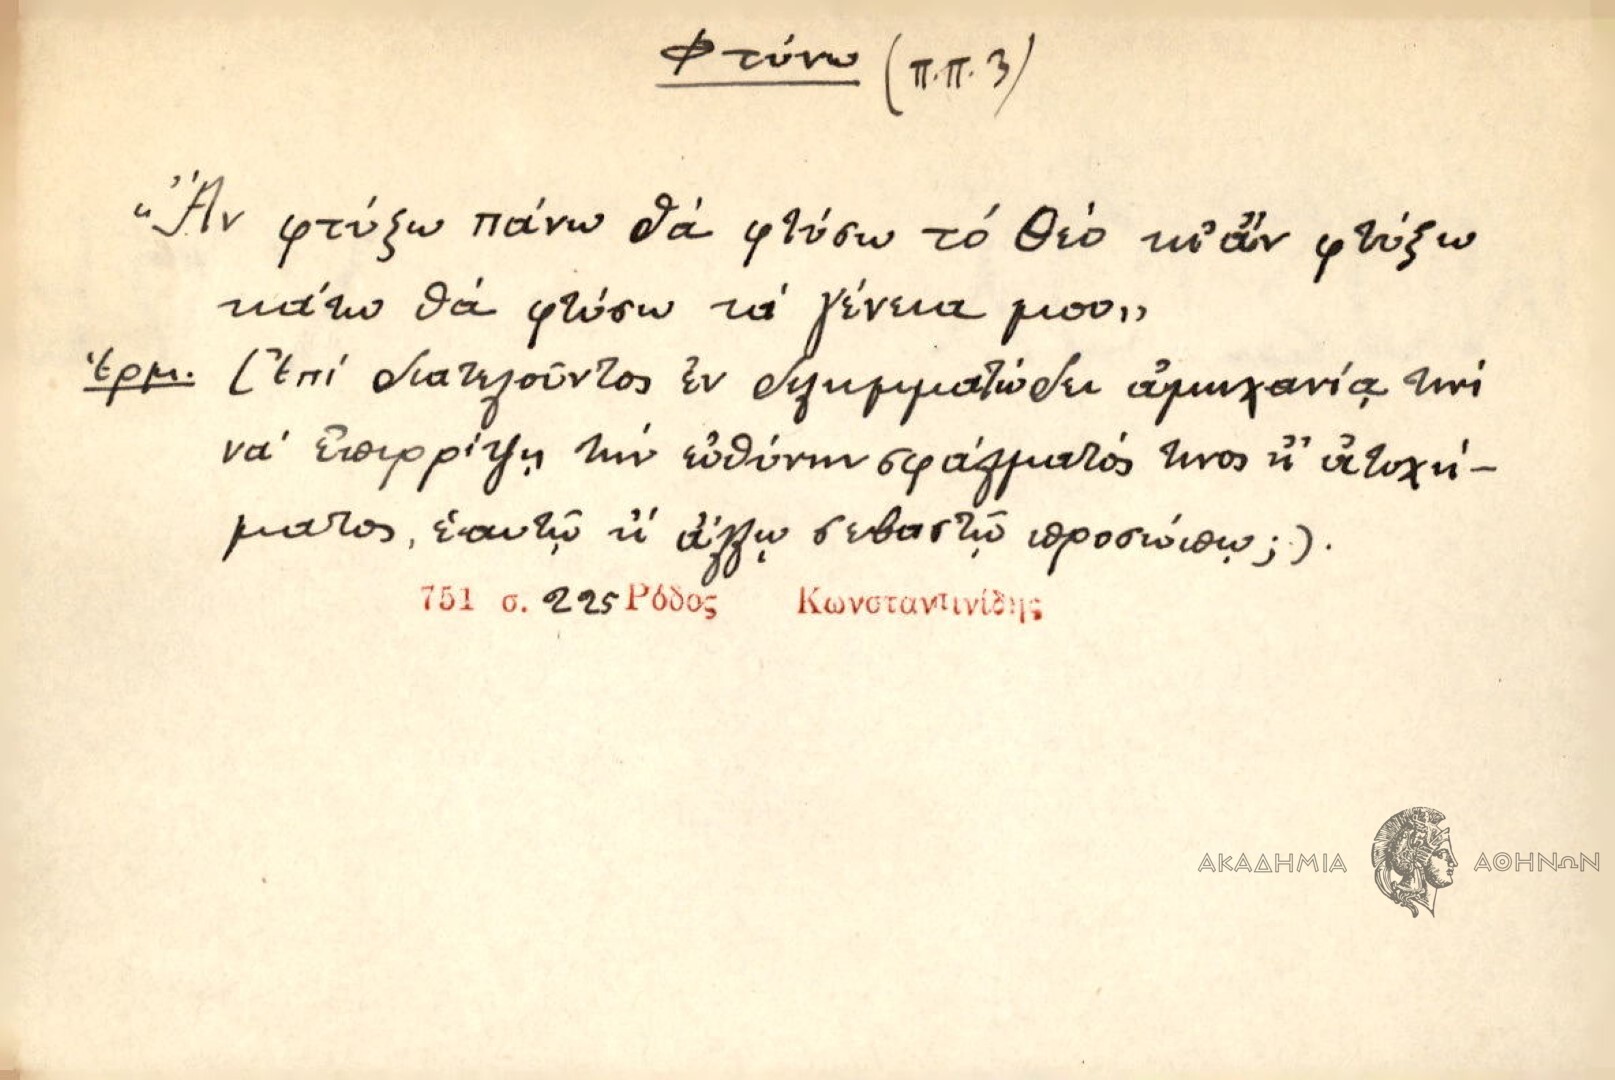 Φτύνω (π.π. 3)
"Ἄν φτύξω πάνω θά φτύσω τό Θεό κι' ἄν φτύξω
κάτω θά φτύσω τά γένεια μου"
Ἑρμ. (Ἐπί διατελοῦντος ἐν διλημματώδει ἀμηχανίᾳ τινί
νά ἐπιρρίψῃ τήν εὐθύνην σφάλματός τινος ἤ ἀτυχή-
ματος, ἑαυτῷ ἤ ἄλλῳ σεβαστῷ προσώπῳ;).
751 σ. 225 Ρόδος Κωνσταντινίδης
ΑΚΑΔΗΜΙΑ ΑΘΗΝΩΝ